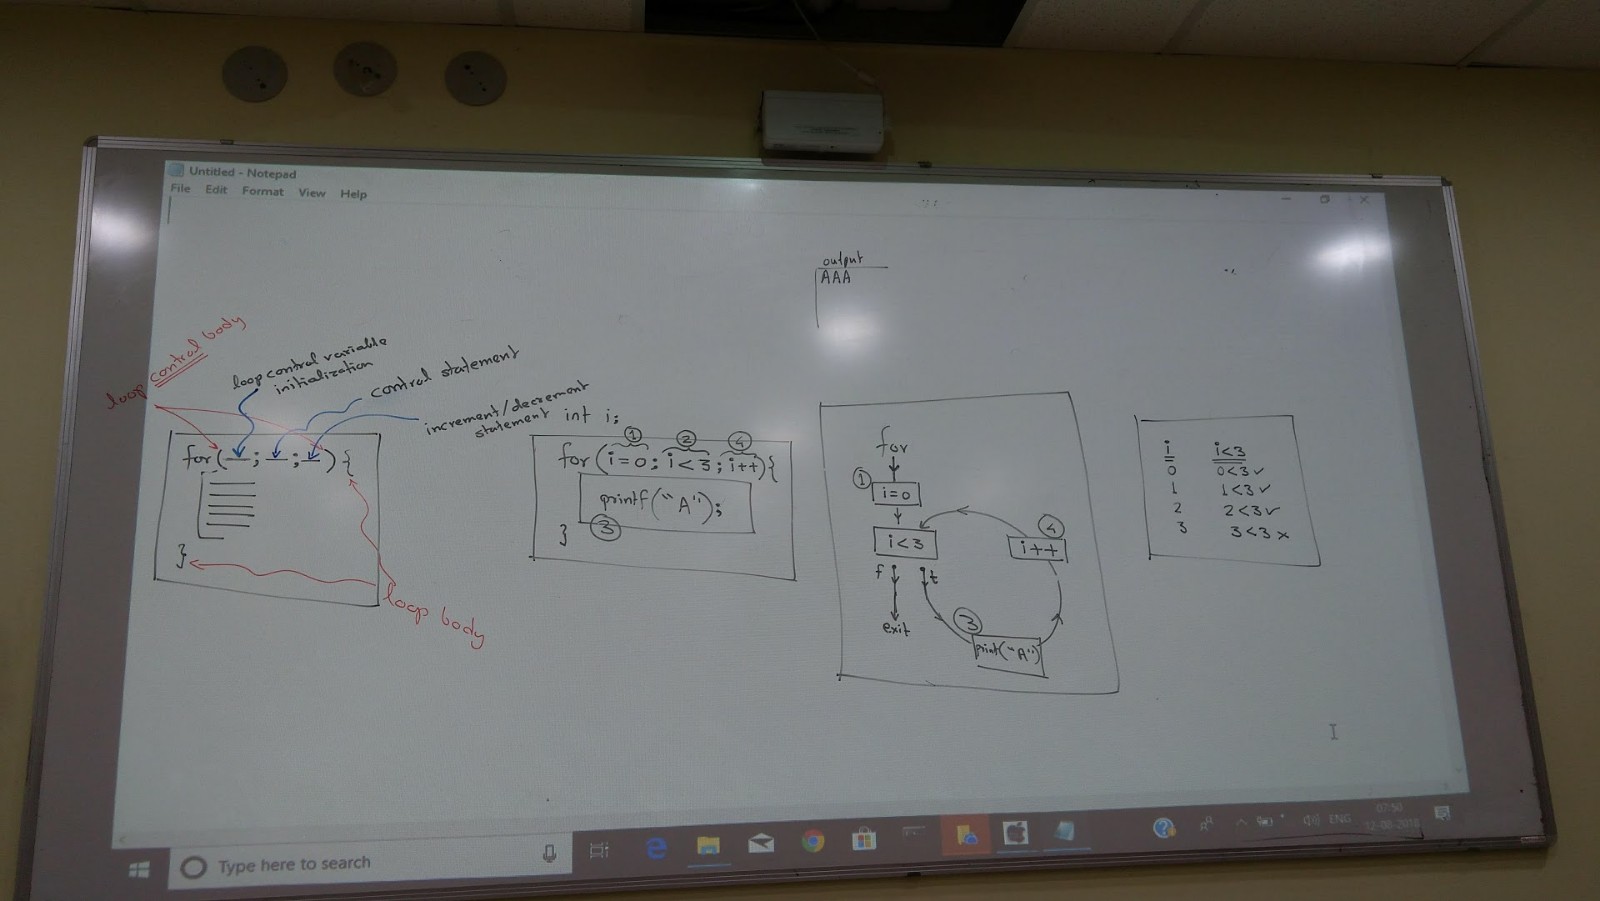 Untitled - Notepad
File Edit Format View Help
output
AAA
loop control body
loop control variable
initialization
control statement
increment/decrement
statement
for(_;_;_){
}
loop body
int i;
① ② ④
for(i=0; i<3; i++){
printf("A");
③
}
for
① i=0
i<3
④
i++
f t
exit
③
print("A")
i i<3
0 0<3 ✓
1 1<3 ✓
2 2<3 ✓
3 3<3 ×
Type here to search
ENG
07:50
12-08-2018